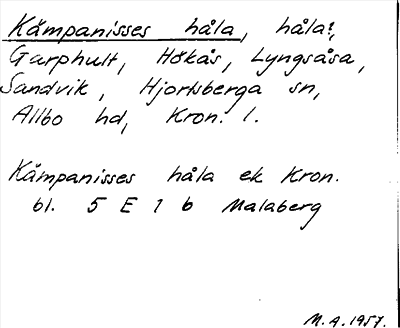 Kämpanisses håla, håla!,
Garphult, Hökås, Lyngsåsa,
Sandvik, Hjortsberga sn,
Allbo hd, Kron. l.
Kämpanisses håla ek Kron.
bl. 5 E 1 b Malaberg
M.A. 1957.